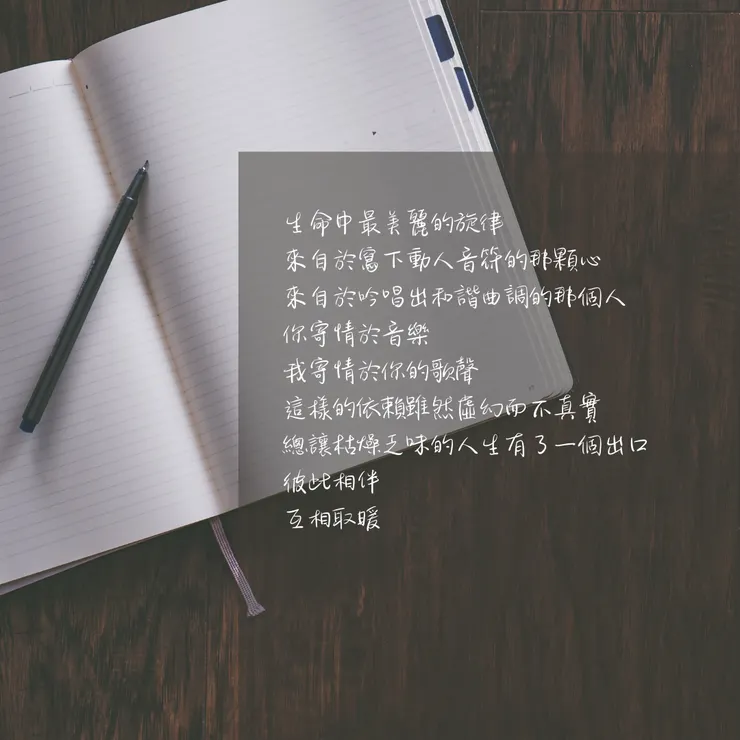 生命中最美麗的旋律
來自於寫下動人音符的那顆心
來自於吟唱出和諧曲調的那個人
你寄情於音樂
我寄情於你的歌聲
這樣的依賴雖然虛幻而不真實
總讓枯燥乏味的人生有了一個出口
彼此相伴
互相取暖